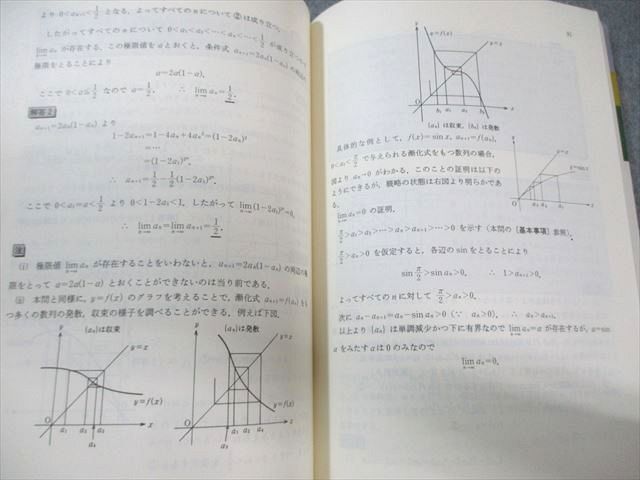 より 0<aₙ₊₁<1/2 となる。よってすべての n について ② は成り立つ。
したがってすべての n について 0<a₁<a₂<…<aₙ<…<1/2 が成り立つ
lim aₙ が存在する。この極限値を a とおくと、条件式 aₙ₊₁=2aₙ(1-aₙ) の
n→∞
極限をとることにより
a=2a(1-a).
ここで 0<a≦1/2 なので a=1/2. ∴ lim aₙ=1/2.
n→∞
解答2
aₙ₊₁=2aₙ(1-aₙ) より
1-2aₙ₊₁=1-4aₙ+4aₙ²=(1-2aₙ)²
=…
=(1-2a₁)^2ⁿ.
∴ aₙ₊₁=1/2-1/2(1-2a₁)^2ⁿ.
ここで 0<a₁=a<1/2 より 0<1-2a₁<1. したがって lim(1-2a₁)^2ⁿ=0.
n→∞
∴ lim aₙ=lim aₙ₊₁=1/2.
n→∞ n→∞
注
(i) 極限値 lim aₙ が存在することをいわないと、aₙ₊₁=2aₙ(1-aₙ) の両辺の極
n→∞
限をとって a=2a(1-a) とおくことができないのは当り前である。
(ii) 本問と同様に、y=f(x) のグラフを考えることで、漸化式 aₙ₊₁=f(aₙ) をも
つ多くの数列の発散、収束の様子を調べることができる。例えば下図。
{aₙ}は収束
y=x
y=f(x)
O
a₁ a₃ a₂
a₄
x
{aₙ}は発散
y=x
y=f(x)
O
a₃ a₁ a₂ a₄
x
y=f(x)
y=x
O
b₁ a₁ a₂
x
{aₙ}は収束、{bₙ}は発散
具体的な例として、f(x)=sin x, aₙ₊₁=f(aₙ),
0<a₁<π/2 で与えられる漸化式をもつ数列の場合、
図より aₙ→0 がわかる。このことの証明は以下の
ようにできるが、戦略の状態は右図より明らかであ
る。
y
y=x
y=sin x
O
a₃ a₂ a₁
x
lim aₙ=0 の証明.
n→∞
π/2>a₁>a₂>…>aₙ>aₙ₊₁>…>0 を示す(本問の[基本事項]参照).
π/2>aₙ>0 を仮定すると、各辺の sin をとることにより
sin π/2>sin aₙ>0. ∴ 1>aₙ₊₁>0.
よってすべての n に対して π/2>aₙ>0.
次に aₙ-aₙ₊₁=aₙ-sin aₙ>0 (∵ aₙ>0). ∴ aₙ>aₙ₊₁.
以上より {aₙ} は単調減少かつ下に有界なので lim aₙ=α が存在するが、α=sin
n→∞
α をみたす α は 0 のみなので
lim aₙ=0.
n→∞